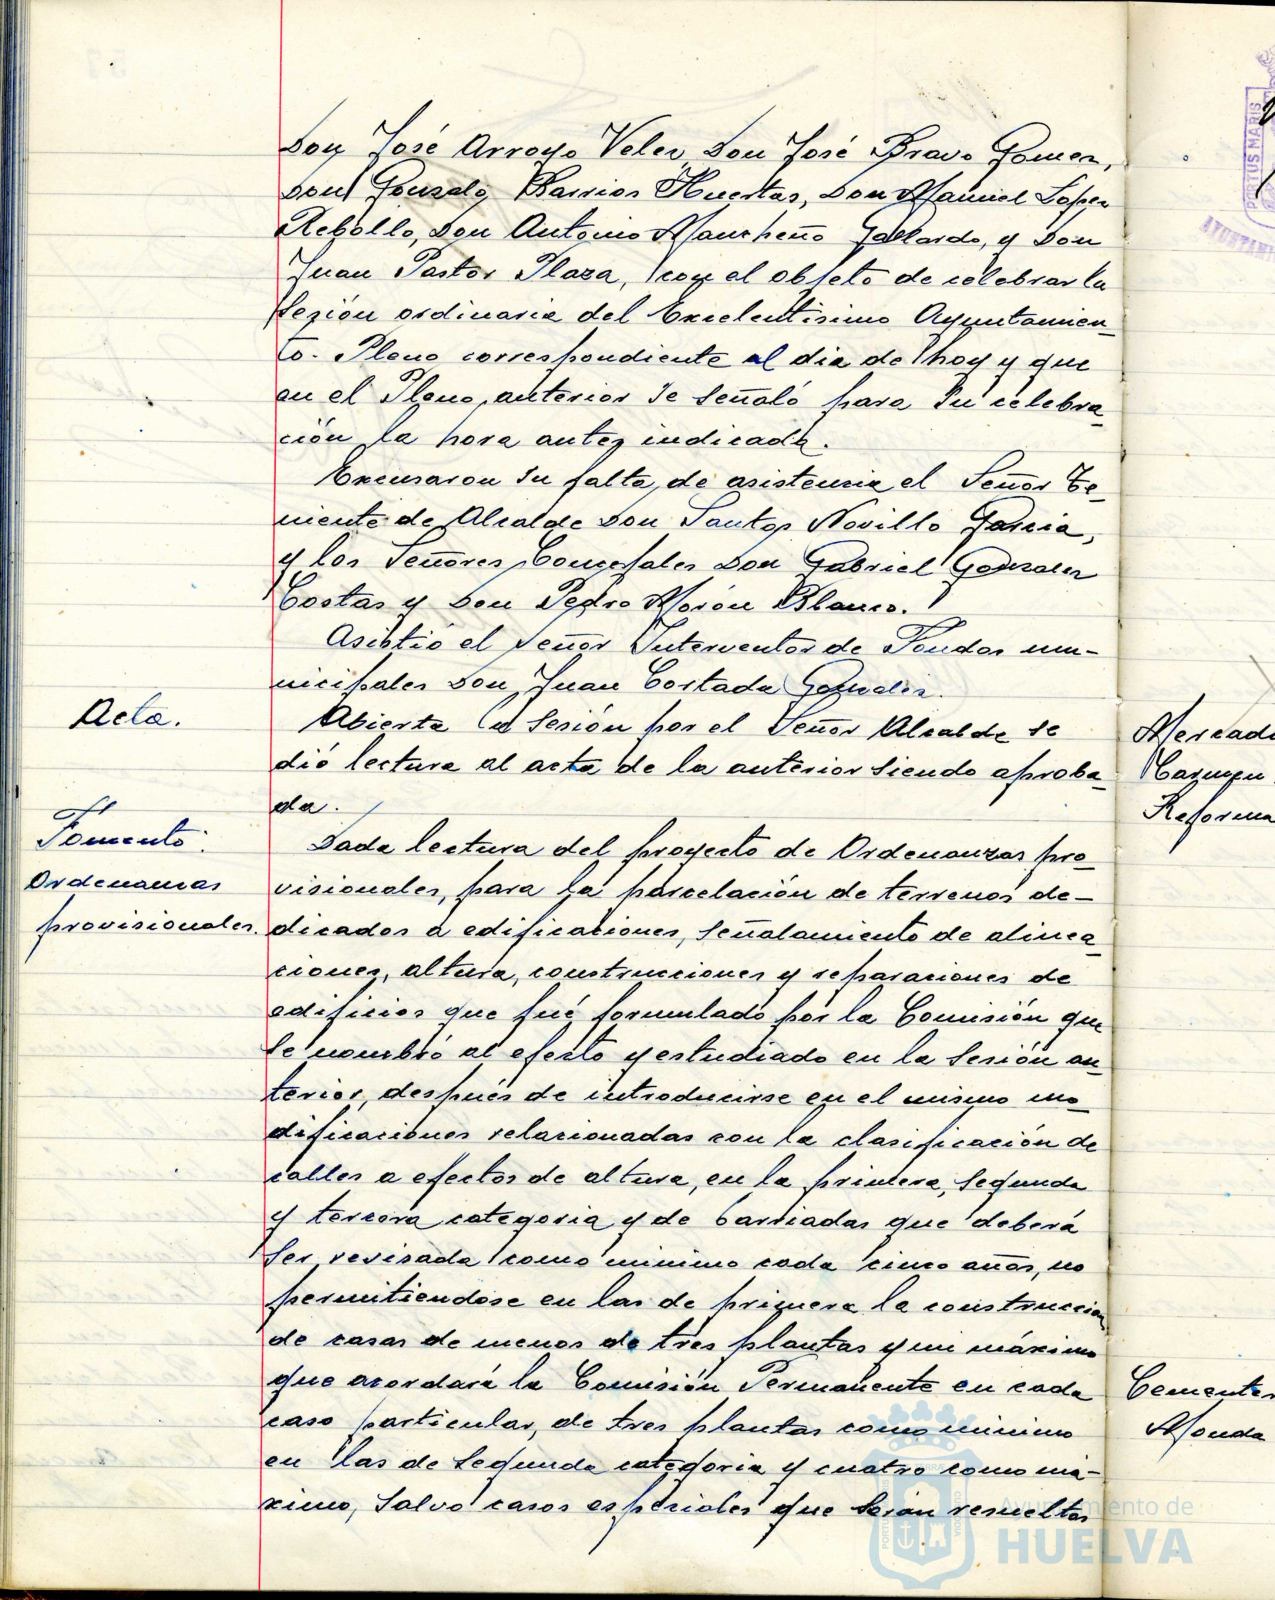 Don José Arroyo Velez, Don José Bravo Gomez,
Don Gonzalo Barrios Huertas, Don Manuel Lopez
Rebollo, Don Antonio Mancheño Gallardo, y Don
Juan Pastor Plaza, con el objeto de celebrar la
Sesión ordinaria del Excelentisimo Ayuntamien-
to- Pleno correspondiente al dia de hoy y que
en el Pleno anterior se señaló para su celebra-
ción la hora antes indicada.
Excusaron su falta de asistencia el Señor Te-
niente de Alcalde Don Santos Novillo Garcia,
y los Señores Concejales Don Gabriel Gonzalez
Costas y Don Pedro Morón Blanco.
Asistió el Señor Interventor de Fondos mu-
nicipales Don Juan Cortada Gonzalez.
Acta.
Abierta la Sesión por el Señor Alcalde se
dió lectura al acta de la anterior siendo aproba-
da.
Fomento.
Ordenanzas
provisionales.
Dada lectura del proyecto de Ordenanzas pro-
visionales, para la parcelación de terrenos de-
dicados a edificaciones, señalamiento de alinea-
ciones, altura, construcciones y reparaciones de
edificios que fué formulado por la Comisión que
se nombró al efecto y estudiado en la Sesión an-
terior, después de introducirse en el mismo mo-
dificaciones relacionadas con la clasificación de
calles a efectos de altura, en la primera, segunda
y tercera categoria y de barriadas que deberá
ser revisada como minimo cada cinco años, no
permitiendose en las de primera la construccion
de casas de menos de tres plantas y un máximo
que acordará la Comisión Permanente en cada
caso particular, de tres plantas como minimo
en las de segunda categoria y cuatro como má-
ximo, salvo casos especiales que serán resueltos
Mercado
Carmen
Reforma
Cementer
Monda
PORTUS MARIS
Ayuntamiento de
HUELVA